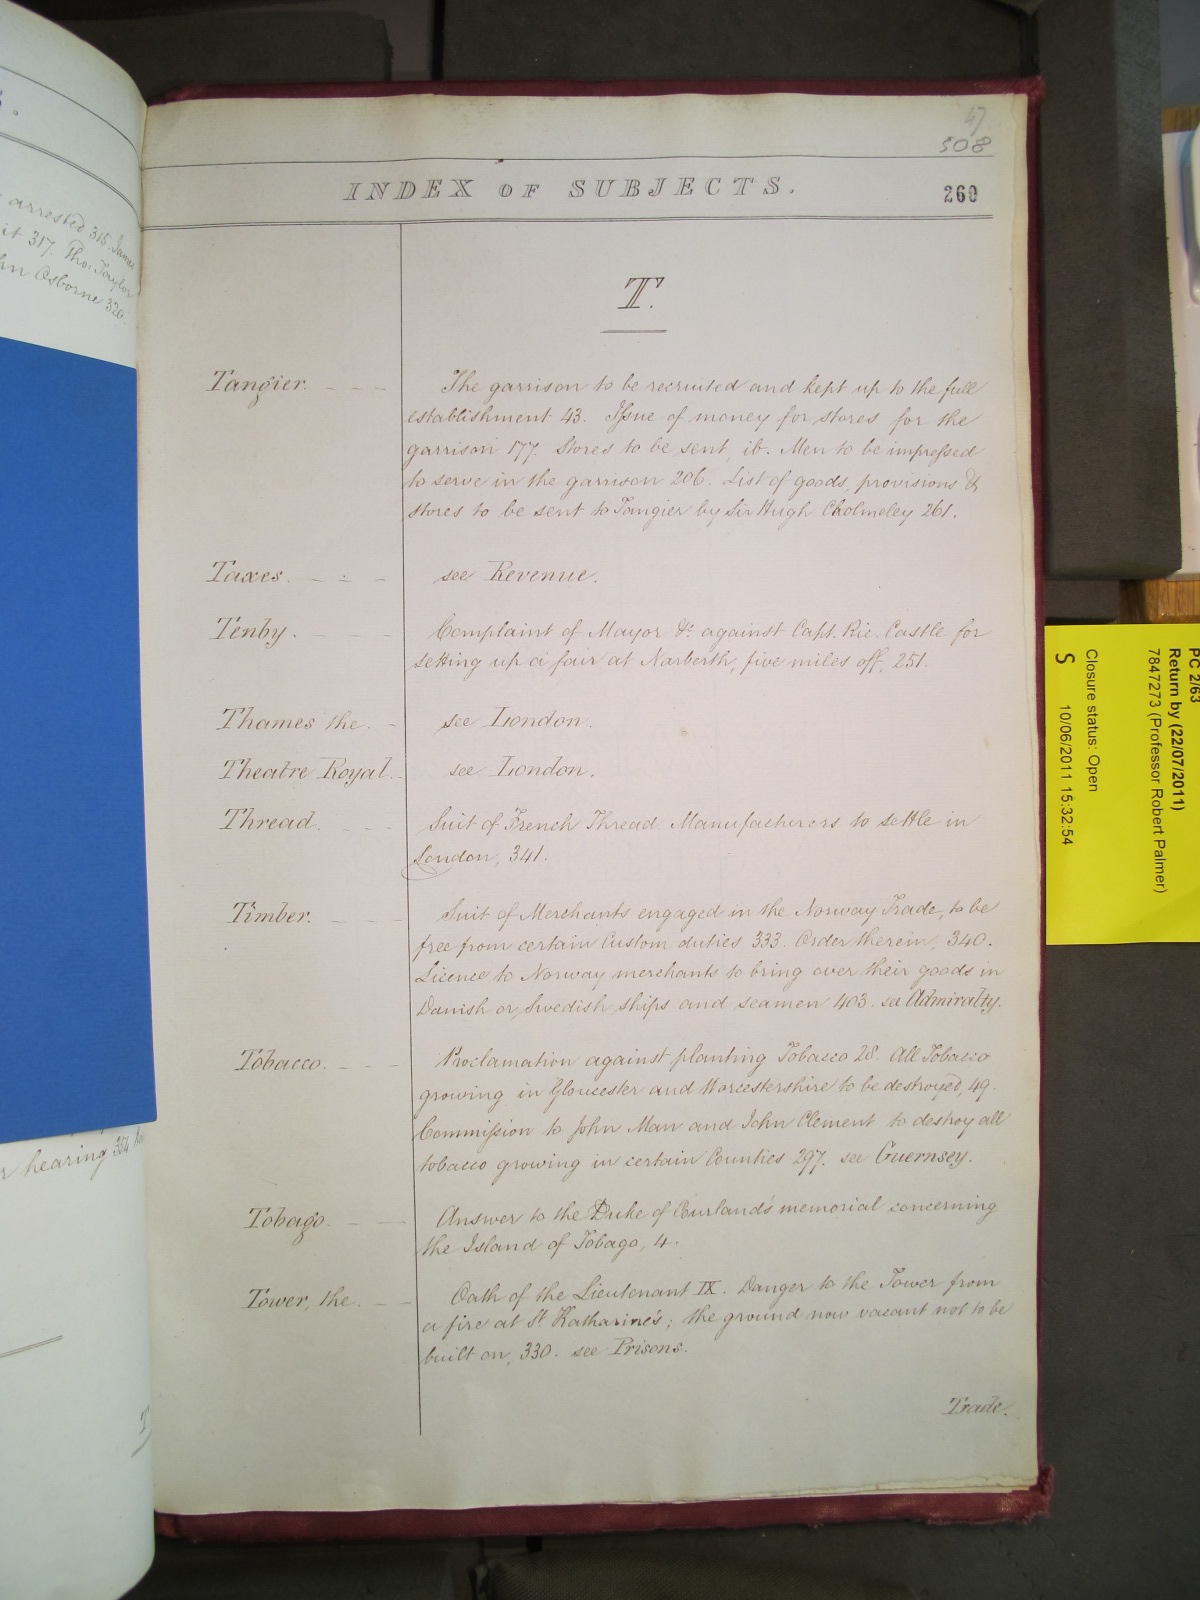 S.
arrested 315. James
it 317. Tho: Taylor
hn Osborne 320.
r hearing 354
47
508
INDEX OF SUBJECTS.
260
T.
Tangier. - - -
The garrison to be recruited and kept up to the full
establishment 43. Issue of money for stores for the
garrison 177. Stores to be sent, ib. Men to be impressed
to serve in the garrison 206. List of goods, provisions &
stores to be sent to Tangier by Sir Hugh Cholmeley 261.
Taxes. - - -
see Revenue.
Tenby. - - -
Complaint of Mayor &c against Capt. Ric. Castle for
setting up a fair at Narberth, five miles off, 251.
Thames the. -
see London.
Theatre Royal. -
see London.
Thread. - - -
Suit of French Thread Manufacturers to settle in
London, 341.
Timber. - - -
Suit of Merchants engaged in the Norway Trade, to be
free from certain Custom duties 333. Order therein, 340.
Licence to Norway merchants to bring over their goods in
Danish or Swedish ships and seamen 403. see Admiralty.
Tobacco. - - -
Proclamation against planting Tobacco 28. All Tobacco
growing in Gloucester and Worcestershire to be destroyed, 49.
Commission to John Man and John Clement to destroy all
tobacco growing in certain Counties 297. see Guernsey.
Tobago. - - -
Answer to the Duke of Courland's memorial concerning
the Island of Tobago, 4.
Tower, the. - -
Oath of the Lieutenant IX. Danger to the Tower from
a fire at St Katharine's; the ground now vacant not to be
built on, 330. see Prisons.
Trade.
PC 2/63
Return by (22/07/2011)
7847273 (Professor Robert Palmer)
Closure status: Open
S 10/06/2011 15:32:54